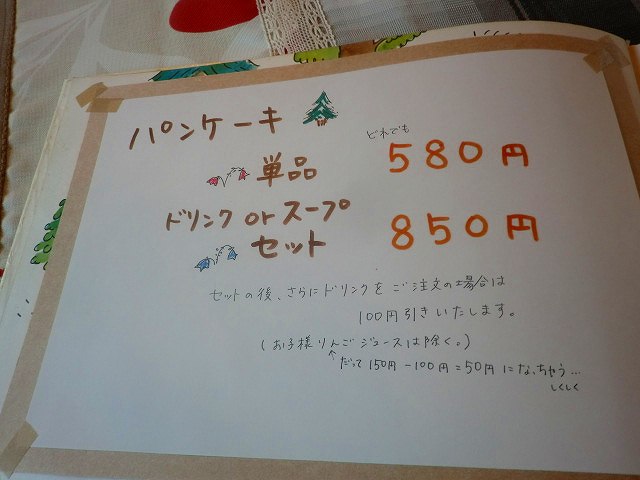 パンケーキ
どれでも
単品 580円
ドリンク or スープ
セット 850円
セットの後、さらにドリンクをご注文の場合は
100円引きいたします。
(お子様りんごジュースは除く。)
↑だって150円-100円=50円になっちゃう…
しくしく